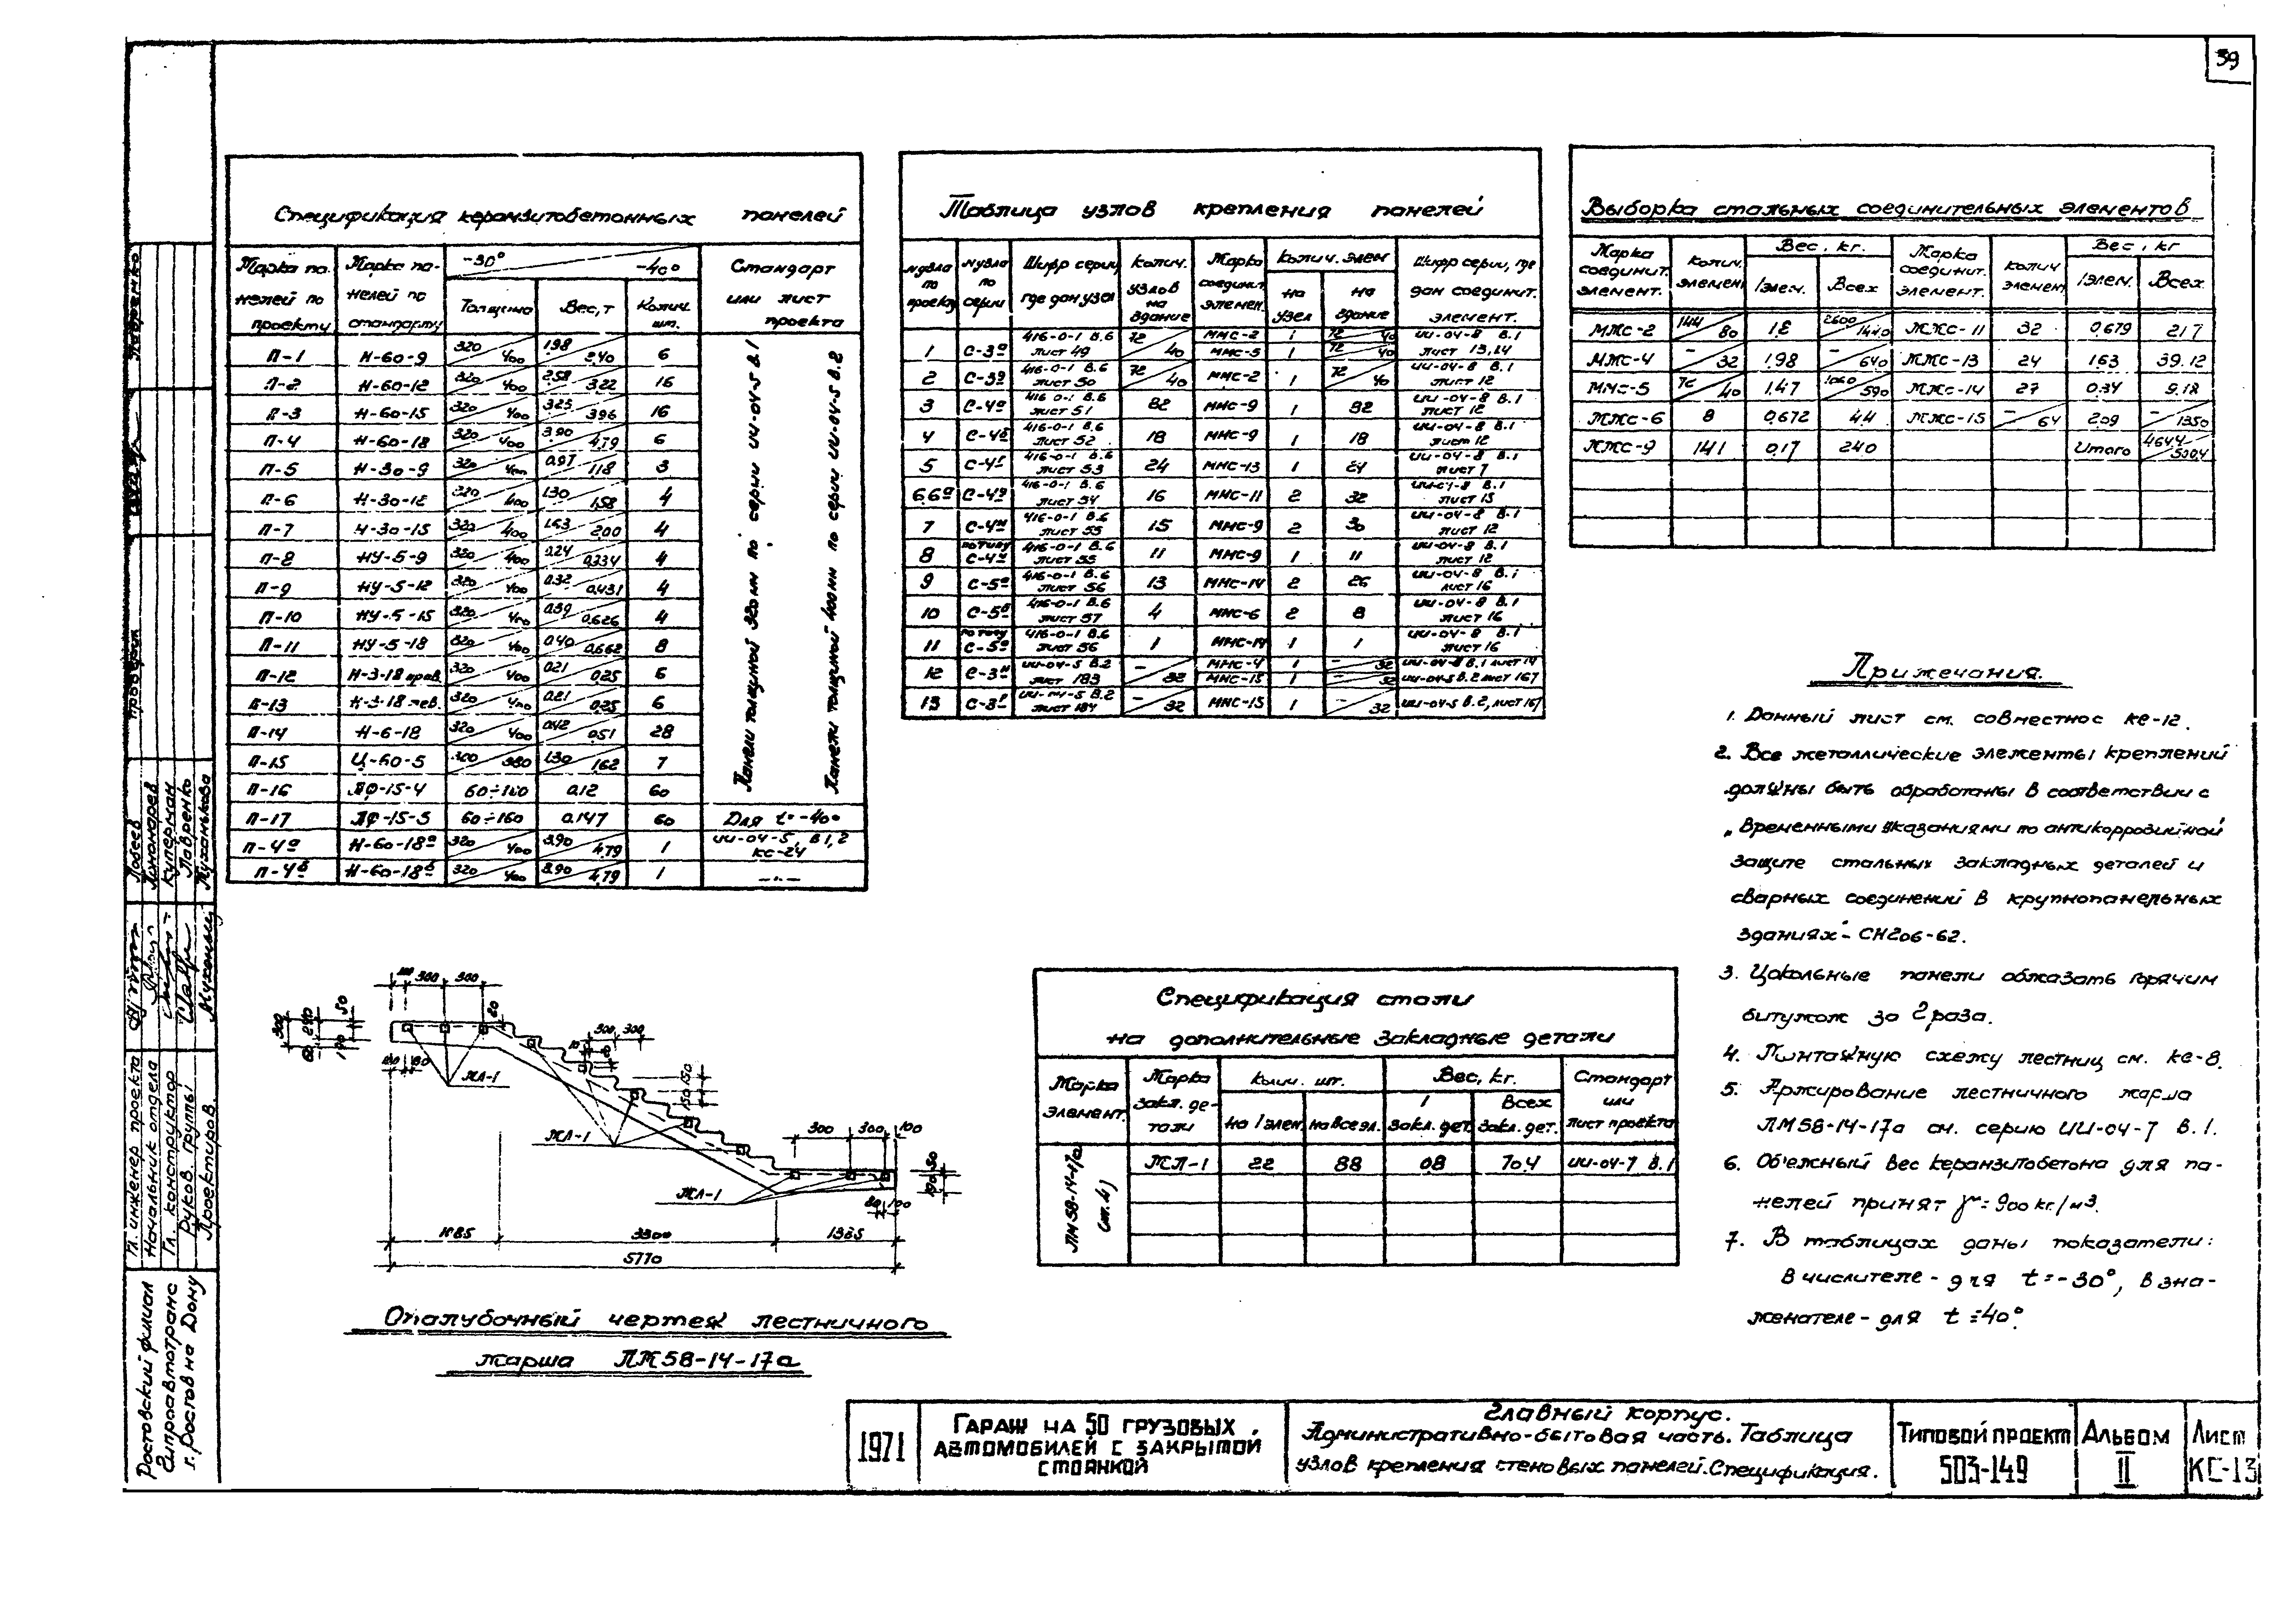 39
Спецификация керамзитобетонных панелей
Марка па- нелей по проекту
Марка па- нелей по стандарту
-30° -40°
Толщина Вес, т Колич. шт.
Стандарт или лист проекта
П-1 Н-60-9 320/400 1.98/2.40 6
П-2 Н-60-12 320/400 2.58/3.22 16
П-3 Н-60-15 320/400 3.25/3.96 16
П-4 Н-60-18 320/400 3.90/4.79 6
П-5 Н-30-9 320/400 0.97/1.18 3
П-6 Н-30-12 320/400 1.30/1.58 4
П-7 Н-30-15 320/400 1.63/2.00 4
П-8 НУ-5-9 320/400 0.24/0.334 4
П-9 НУ-5-12 320/400 0.32/0.431 4
П-10 НУ-5-15 320/400 0.39/0.626 4
П-11 НУ-5-18 320/400 0.40/0.662 8
П-12 Н-3-18 прав. 320/400 0.21/0.25 6
П-13 Н-3-18 лев. 320/400 0.21/0.25 6
П-14 Н-6-18 320/400 0.42/0.51 28
П-15 Ц-60-5 320/380 1.30/1.62 7
П-16 ПФ-15-4 60÷160 0.12 60
П-17 ПФ-15-5 60÷160 0.147 60 Для t=-40°
П-4а Н-60-18а 320/400 3.90/4.79 1 ИИ-04-5, В1,2 КС-24
П-4б Н-60-18б 320/400 3.90/4.79 1 —"—
Панели толщиной 320мм по серии ИИ-04-5 В.1
Панели толщиной 400мм по серии ИИ-04-5 В.2
Таблица узлов крепления панелей
№узла по проекту
№узла по серии
Шифр серии, где дан узел
Колич. узлов на здание
Марка соединит. элемен.
Колич. элем
на узел
на здание
Шифр серии, где дан соединит. элемент.
1 С-3а 416-0-1 В.6 лист 49 72/40 ММС-2 1 72/40 ИИ-04-8 В.1
ММС-5 1 72/40 лист 13,14
2 С-3а 416-0-1 В.6 лист 50 72/40 ММС-2 1 72/40 ИИ-04-8 В.1 лист 12
3 С-4а 416-0-1 В.6 лист 51 82 ММС-9 1 82 ИИ-04-8 В.1 лист 12
4 С-4б 416-0-1 В.6 лист 52 18 ММС-9 1 18 ИИ-04-8 В.1 лист 12
5 416-0-1 В.6 лист 53 24 ММС-13 1 24 ИИ-04-8 В.1 лист 7
6,6а 416-0-1 В.6 лист 54 16 ММС-11 2 32 ИИ-04-8 В.1 лист 15
7 С-4и 416-0-1 В.6 лист 55 15 ММС-9 2 30 ИИ-04-8 В.1 лист 12
8 по типу С-4и 416-0-1 В.6 лист 55 11 ММС-9 1 11 ИИ-04-8 В.1 лист 12
9 С-5а 416-0-1 В.6 лист 56 13 ММС-14 2 26 ИИ-04-8 В.1 лист 16
10 С-5б 416-0-1 В.6 лист 57 4 ММС-6 2 8 ИИ-04-8 В.1 лист 16
11 по типу С-5а 416-0-1 В.6 лист 56 1 ММС-14 1 1 ИИ-04-8 В.1 лист 16
12 С-3и ИИ-04-5 В.2 лист 183 –/32 ММС-4 1 –/32 ИИ-04-8 В.1 лист 14
ММС-15 1 –/32 ИИ-04-5 В.2 лист 167
13 ИИ-04-5 В.2 лист 184 –/32 ММС-15 1 –/32 ИИ-04-5 В.2, лист 167
Выборка стальных соединительных элементов
Марка соединит. элемент.
Колич. элемен.
Вес, кг.
1элем. Всех
Марка соединит. элемент.
Колич элемен.
Вес, кг
1элем. Всех
ММС-2 144/80 1.8 2600/1440 ММС-11 32 0.679 21.7
ММС-4 –/32 1.98 –/640 ММС-13 24 1.63 39.12
ММС-5 72/40 1.47 1060/590 ММС-14 27 0.34 9.18
ММС-6 8 0.672 4.4 ММС-15 –/64 2.09 –/1350
ММС-9 141 0.17 24.0 Итого 464.4/500.4
Примечания.
1. Данный лист см. совместнос КС-12.
2. Все металлические элементы креплений
должны быть обработаны в соответствии с
„Временными указаниями по антикоррозийной
защите стальных закладных деталей и
сварных соединений в крупнопанельных
зданиях" - СН206-62.
3. Цокольные панели обмазать горячим
битумом за 2 раза.
4. Монтажную схему лестниц см. КС-8.
5. Армирование лестничного марша
ЛМ58-14-17а см. серию ИИ-04-7 В.1.
6. Объемный вес керамзитобетона для па-
нелей принят γ=900 кг/м3.
7. В таблицах даны показатели:
В числителе - для t=-30°, в зна-
менателе - для t=-40°.
100 300 300
300 290 50
60 190
100 80
20
300 300
10 80
150 150
МЛ-1
МЛ-1
МЛ-1
300 300 100
190 50
80 100
1085 3300 1385
5770
Опалубочный чертеж лестничного
марша ЛМ58-14-17а
Спецификация стали
на дополнительные закладные детали
Марка элемент.
Марка закл. де- тали
Колич. шт.
на 1 элем. на все эл.
Вес, кг.
1 закл. дет.
Всех закл. дет.
Стандарт или лист проекта
ЛМ58-14-17а (шт. 4)
МЛ-1 22 88 0.8 70.4 ИИ-04-7 В.1
1971
Гараж на 50 грузовых
автомобилей с закрытой
стоянкой
Главный корпус.
Административно-бытовая часть. Таблица
узлов крепления стеновых панелей. Спецификация.
Типовой проект
503-149
Альбом
II
Лист
КС-13
Ростовский филиал
Гипроавтотранс
г. Ростов на Дону
Гл. инженер проекта
Начальник отдела
Гл. конструктор
Руков. группы
Проектиров.
Проверил
Лобеев
Куперман
Лавренко
Муханькова
Лавренко